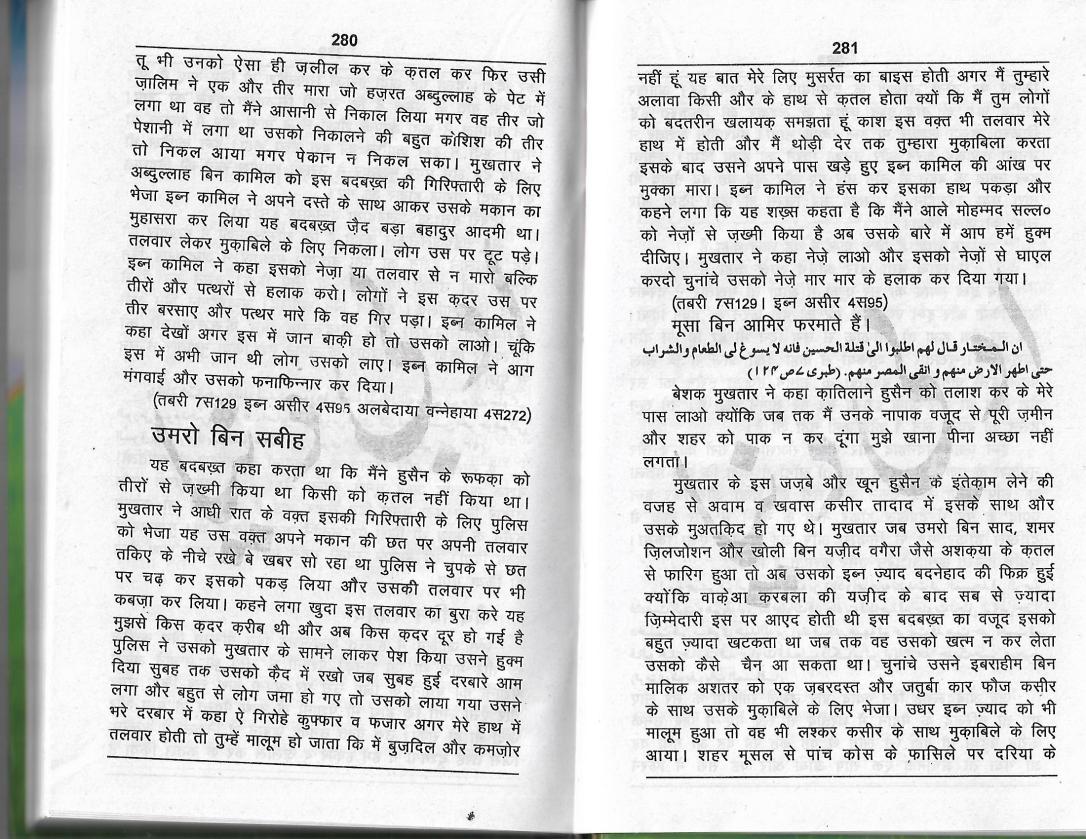 280
तू भी उनको ऐसा ही ज़लील कर के क़तल कर फिर उसी
ज़ालिम ने एक और तीर मारा जो हज़रत अब्दुल्लाह के पेट में
लगा था वह तो मैंने आसानी से निकाल लिया मगर वह तीर जो
पेशानी में लगा था उसको निकालने की बहुत कोशिश की तीर
तो निकल आया मगर पेकान न निकल सका। मुखतार ने
अब्दुल्लाह बिन कामिल को इस बदबख़्त की गिरिफ्तारी के लिए
भेजा इब्न कामिल ने अपने दस्ते के साथ आकर उसके मकान का
मुहासरा कर लिया यह बदबख़्त ज़ैद बड़ा बहादुर आदमी था।
तलवार लेकर मुक़ाबिले के लिए निकला। लोग उस पर टूट पड़े।
इब्न कामिल ने कहा इसको नेज़ा या तलवार से न मारो बल्कि
तीरों और पत्थरों से हलाक करो। लोगों ने इस क़दर उस पर
तीर बरसाए और पत्थर मारे कि वह गिर पड़ा। इब्न कामिल ने
कहा देखों अगर इस में जान बाक़ी हो तो उसको लाओ। चूंकि
इस में अभी जान थी लोग उसको लाए। इब्न कामिल ने आग
मंगवाई और उसको फनाफिन्नार कर दिया।
(तबरी 7स129 इब्न असीर 4स95 अलबेदाया वन्नेहाया 4स272)
उमरो बिन सबीह
यह बदबख़्त कहा करता था कि मैंने हुसैन के रूफक़ा को
तीरों से ज़ख्मी किया था किसी को क़तल नहीं किया था।
मुखतार ने आधी रात के वक़्त इसकी गिरिफ्तारी के लिए पुलिस
को भेजा यह उस वक़्त अपने मकान की छत पर अपनी तलवार
तकिए के नीचे रखे बे खबर सो रहा था पुलिस ने चुपके से छत
पर चढ़ कर इसको पकड़ लिया और उसकी तलवार पर भी
कबज़ा कर लिया। कहने लगा खुदा इस तलवार का बुरा करे यह
मुझसे किस क़दर क़रीब थी और अब किस क़दर दूर हो गई है
पुलिस ने उसको मुखतार के सामने लाकर पेश किया उसने हुक्म
दिया सुबह तक उसको क़ैद में रखो जब सुबह हुई दरबारे आम
लगा और बहुत से लोग जमा हो गए तो उसको लाया गया उसने
भरे दरबार में कहा ऐ गिरोहे कुफ्फार व फजार अगर मेरे हाथ में
तलवार होती तो तुम्हें मालूम हो जाता कि में बुज़दिल और कमजोर
281
नहीं हूं यह बात मेरे लिए मुसर्रत का बाइस होती अगर मैं तुम्हारे
अलावा किसी और के हाथ से क़तल होता क्यों कि मैं तुम लोगों
को बदतरीन खलायक़ समझता हूं काश इस वक़्त भी तलवार मेरे
हाथ में होती और मैं थोड़ी देर तक तुम्हारा मुक़ाबिला करता
इसके बाद उसने अपने पास खड़े हुए इब्न कामिल की आंख पर
मुक्का मारा। इब्न कामिल ने हंस कर इसका हाथ पकड़ा और
कहने लगा कि यह शख़्स कहता है कि मैंने आले मोहम्मद सल्ल०
को नेज़ों से ज़ख्मी किया है अब उसके बारे में आप हमें हुक्म
दीजिए। मुखतार ने कहा नेज़े लाओ और इसको नेज़ों से घाएल
करदो चुनांचे उसको नेज़े मार मार के हलाक कर दिया गया।
(तबरी 7स129। इब्न असीर 4स95)
मूसा बिन आमिर फरमाते हैं।
ان المختار قال لهم اطلبوا الیٰ قتلة الحسین فانه لا یسوغ لی الطعام والشراب
حتی اطهر الارض منهم و انقی المصر منهم. (طبری ۷ص۱۲۴)
बेशक मुखतार ने कहा क़ातिलाने हुसैन को तलाश कर के मेरे
पास लाओ क्योंकि जब तक मैं उनके नापाक वजूद से पूरी ज़मीन
और शहर को पाक न कर दूंगा मुझे खाना पीना अच्छा नहीं
लगता।
मुखतार के इस जज़बे और खून हुसैन के इंतेक़ाम लेने की
वजह से अवाम व खवास कसीर तादाद में इसके साथ और
उसके मुअतकिद हो गए थे। मुखतार जब उमरो बिन साद, शमर
ज़िलजोशन और खोली बिन यज़ीद वगैरा जैसे अशक़या के क़तल
से फारिग हुआ तो अब उसको इब्न ज़्याद बदनेहाद की फिक्र हुई
क्योंकि वाक़ेआ करबला की यज़ीद के बाद सब से ज़्यादा
ज़िम्मेदारी इस पर आएद होती थी इस बदबख़्त का वजूद इसको
बहुत ज़्यादा खटकता था जब तक वह उसको खत्म न कर लेता
उसको कैसे चैन आ सकता था। चुनांचे उसने इबराहीम बिन
मालिक अशतर को एक ज़बरदस्त और जतुर्बा कार फौज कसीर
के साथ उसके मुक़ाबिले के लिए भेजा। उधर इब्न ज़्याद को भी
मालूम हुआ तो वह भी लश्कर कसीर के साथ मुक़ाबिले के लिए
आया। शहर मूसल से पांच कोस के फ़ासिले पर दरिया के